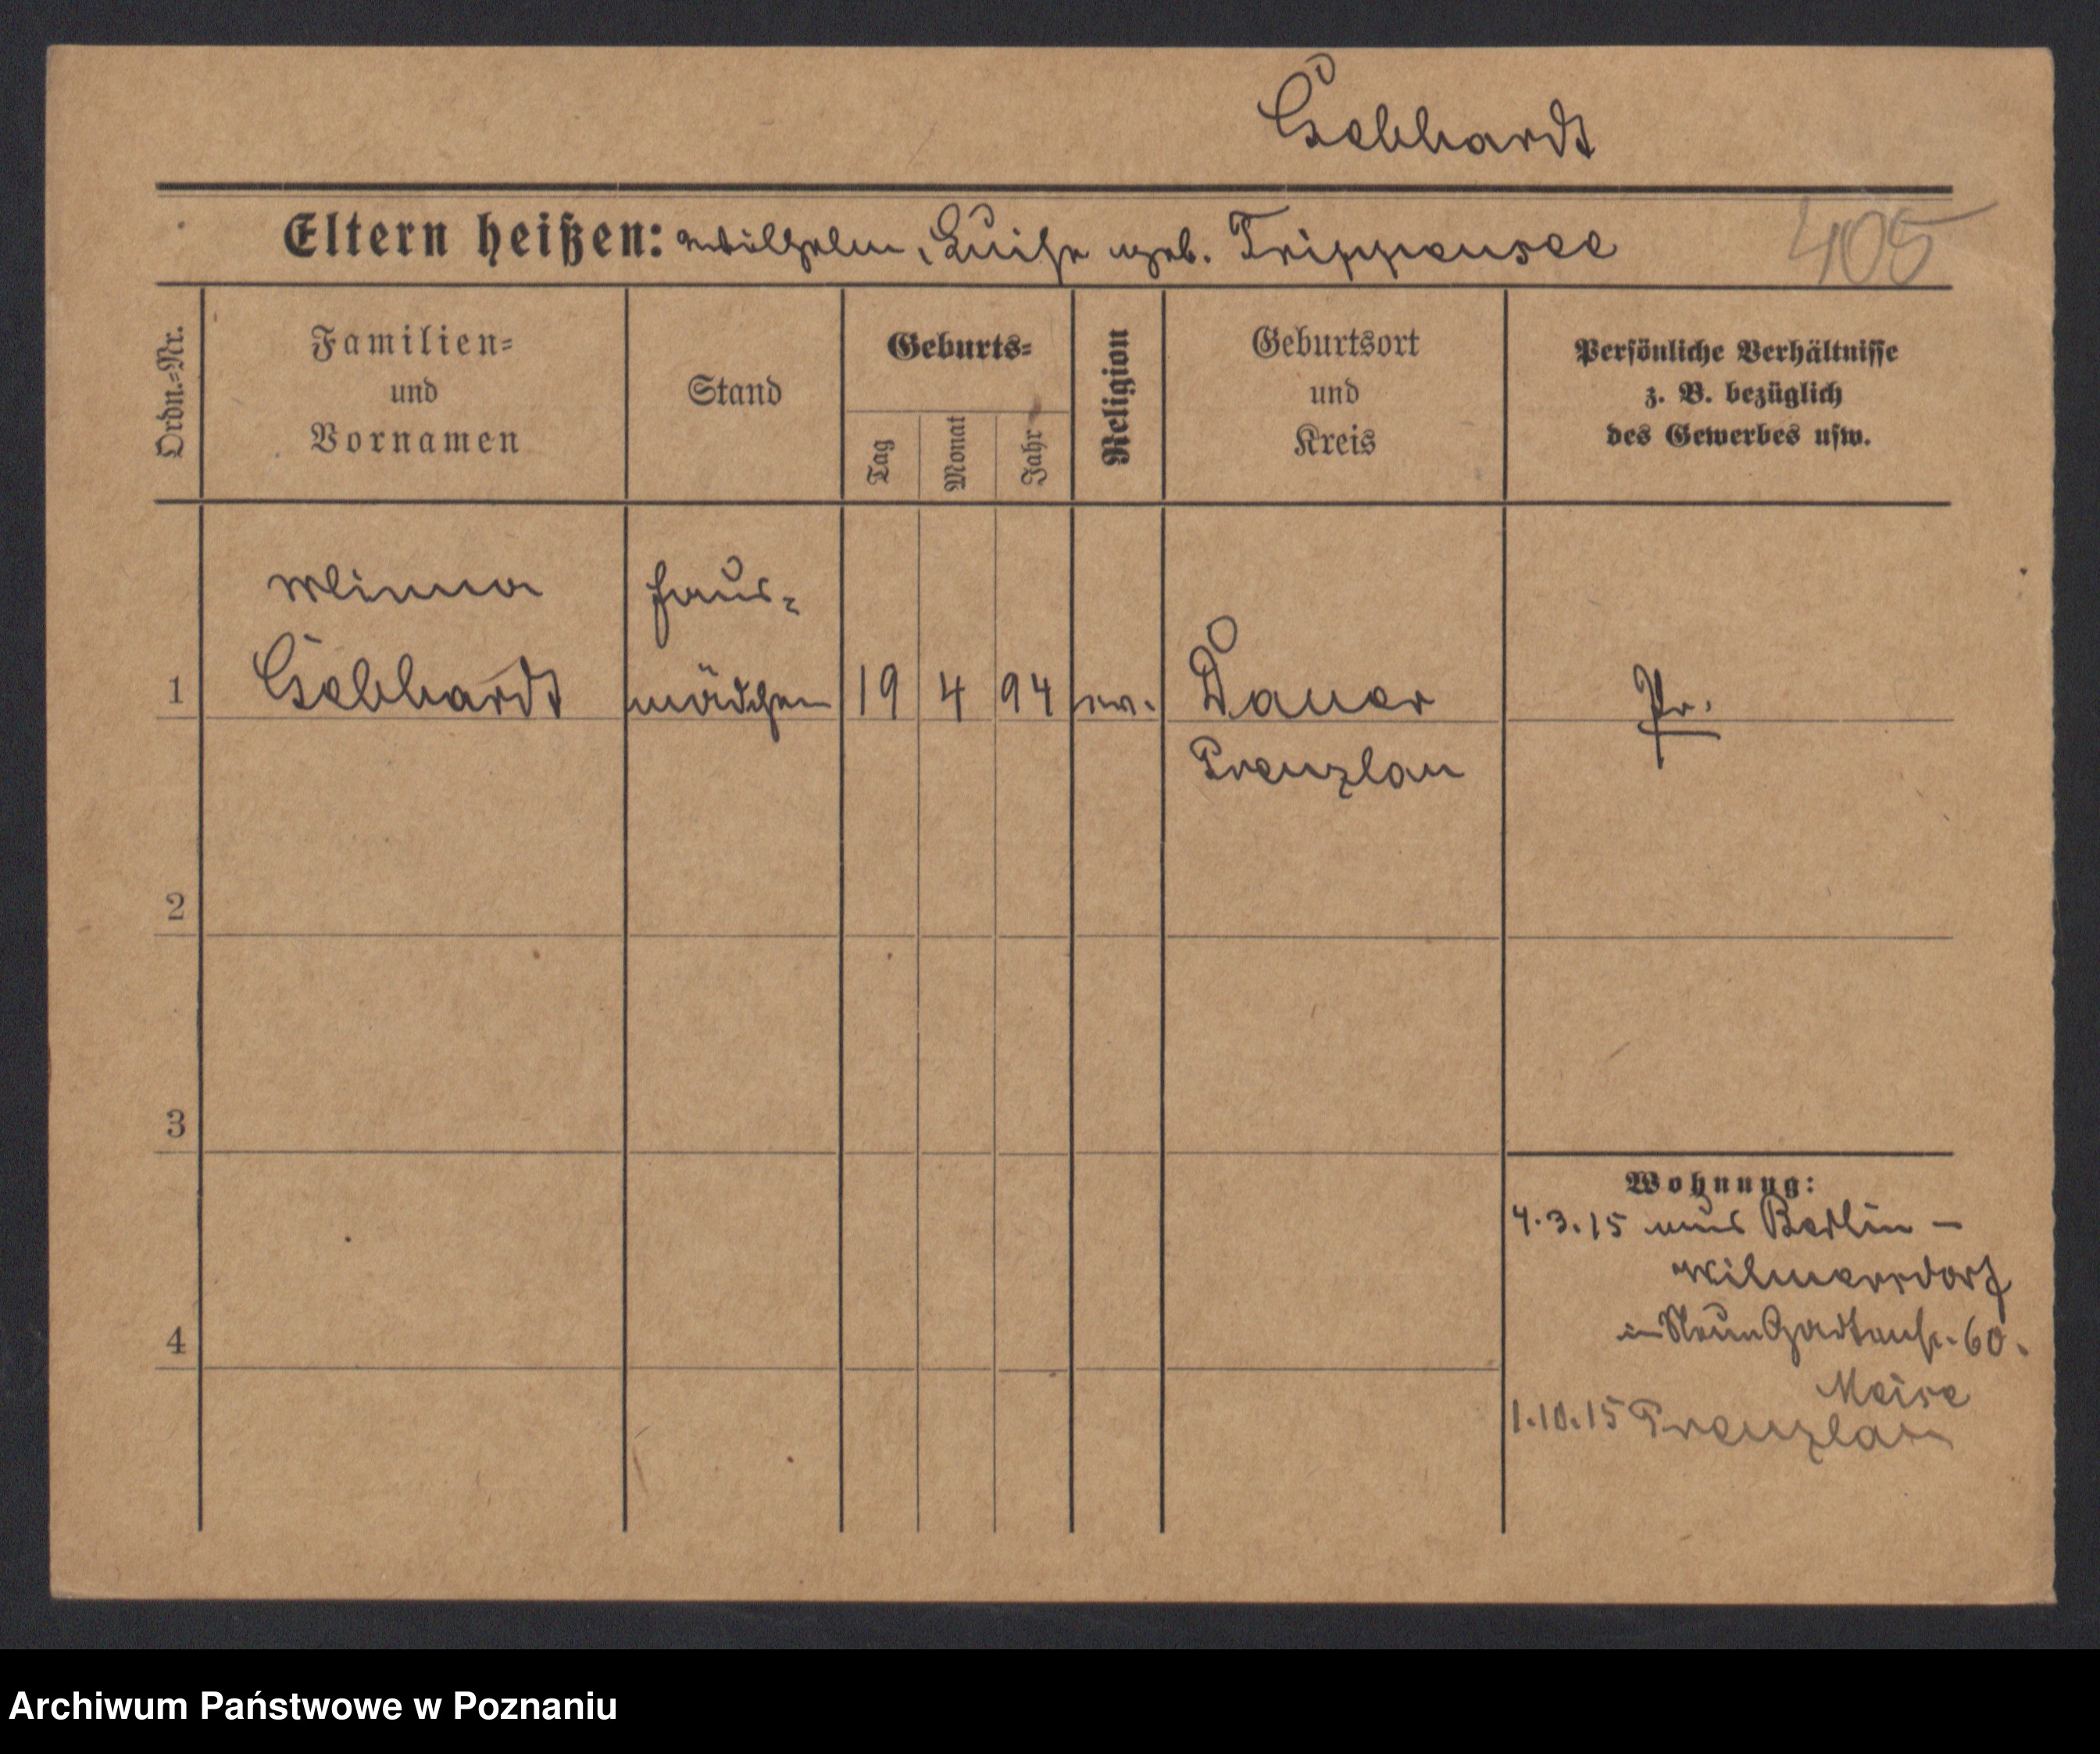 Gebhardt
Eltern heißen: Wilhelm, Luise geb. Trippensee
405
Ordn.=Nr.
Familien=
und
Vornamen
Stand
Geburts=
Tag
Monat
Jahr
Religion
Geburtsort
und
Kreis
Persönliche Verhältnisse
z. B. bezüglich
des Gewerbes usw.
Minna Haus=
1 Gebhardt mädchen 19 4 94 ev. Dauer Pr.
Prenzlau
2
3
4
Wohnung:
4.3.15 aus Berlin –
Wilmersdorf
in Neue Gartenstr. 60.
Meise
1.10.15 Prenzlau
Archiwum Państwowe w Poznaniu